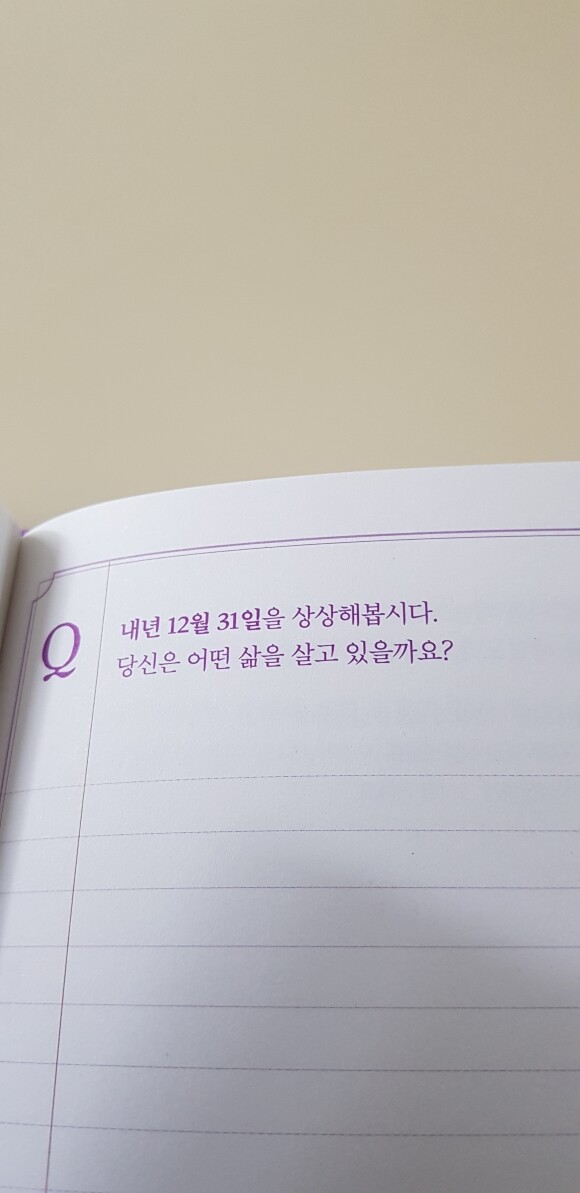 Q
내년 12월 31일을 상상해봅시다.
당신은 어떤 삶을 살고 있을까요?